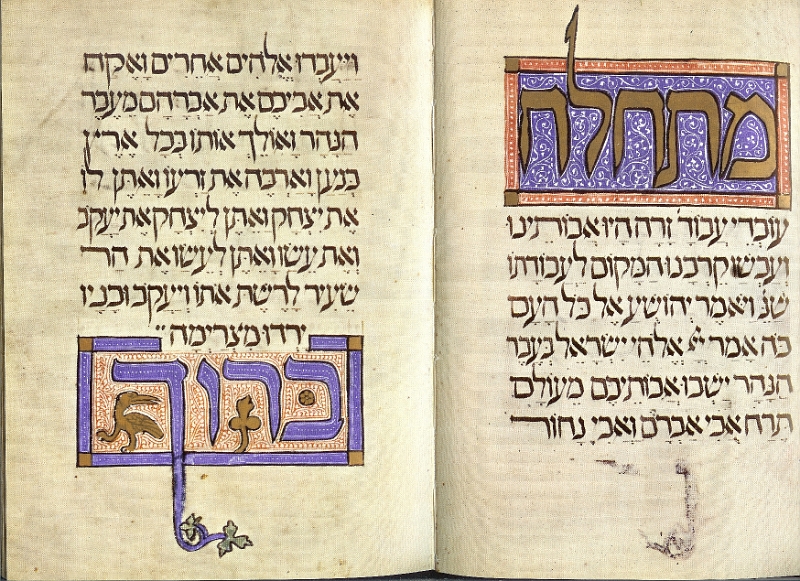 מתחלה
עובדי עבוד' זרה היו אבותינו
ועכשו קרבנו המקום לעבודתו
שנ' ויאמר יהושע אל כל העם
כה אמר ייי אלהי ישראל בעבר
הנהר ישבו אבותיכם מעולם
תרח אבי אברהם ואבי נחור
ויעבדו אלהים אחרים ואקח
את אביכם את אברהם מעבר
הנהר ואולך אותו בכל ארץ
כנען וארבה את זרעו ואתן לו
את יצחק ואתן ליצחק את יעקב
ואת עשו ואתן לעשו את הר
שעיר לרשת אתו ויעקב ובניו
ירדו מצרימה
ברוך